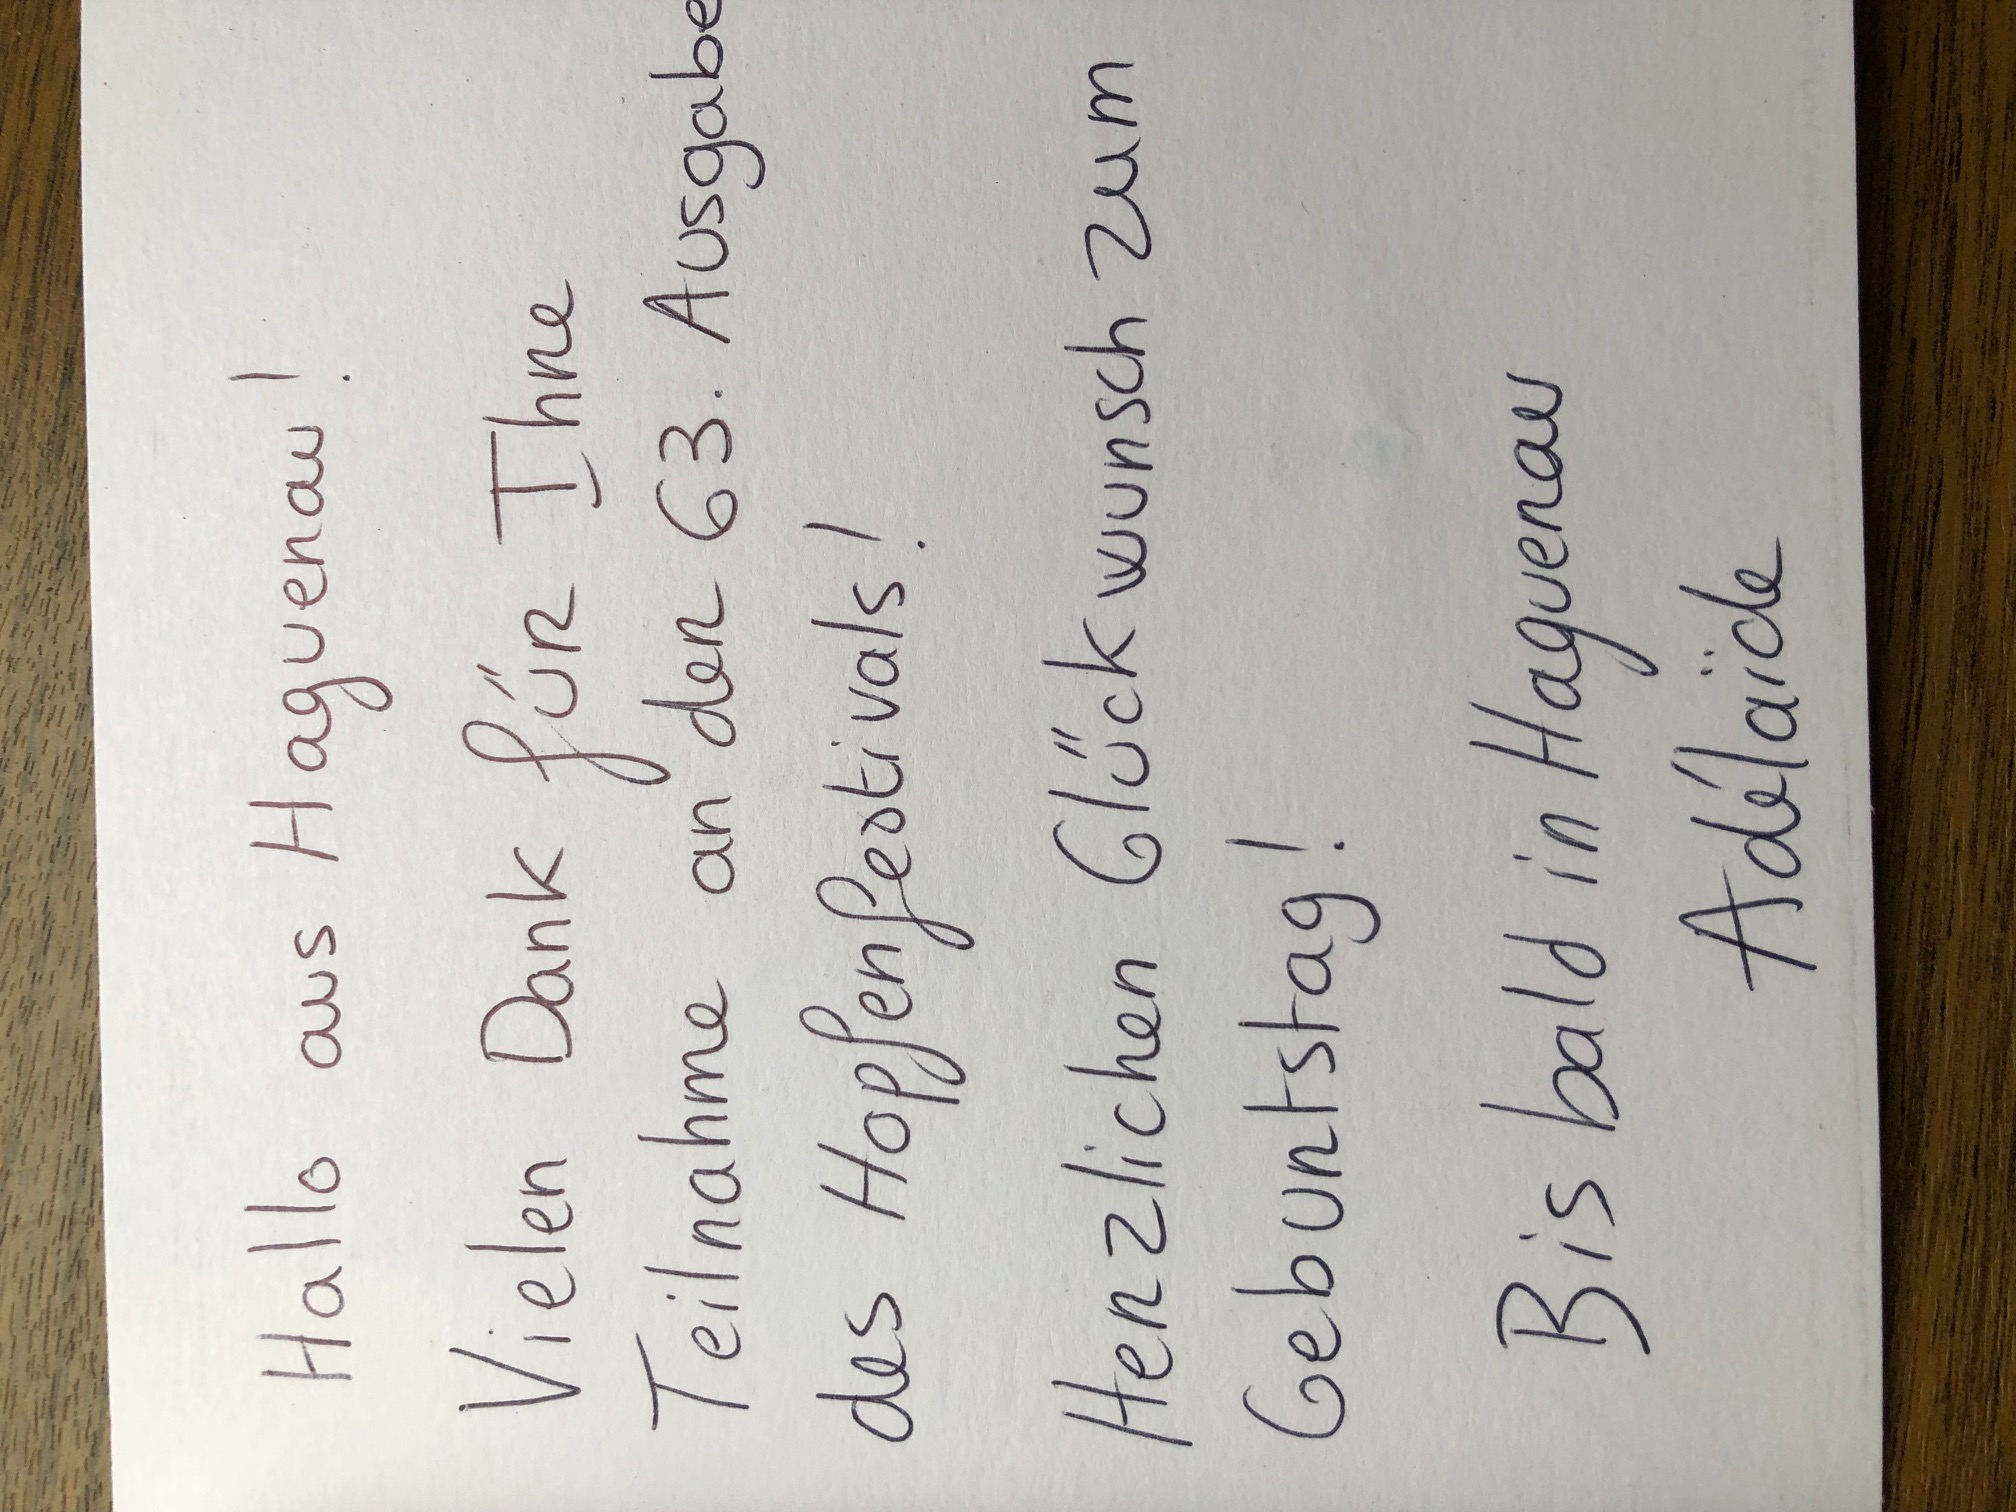 Hallo aus Haguenau!
Vielen Dank für Ihre
Teilnahme an der 63. Ausgabe
des Hopfenfestivals!
Herzlichen Glückwunsch zum
Geburtstag!
Bis bald in Haguenau
Adélaïde